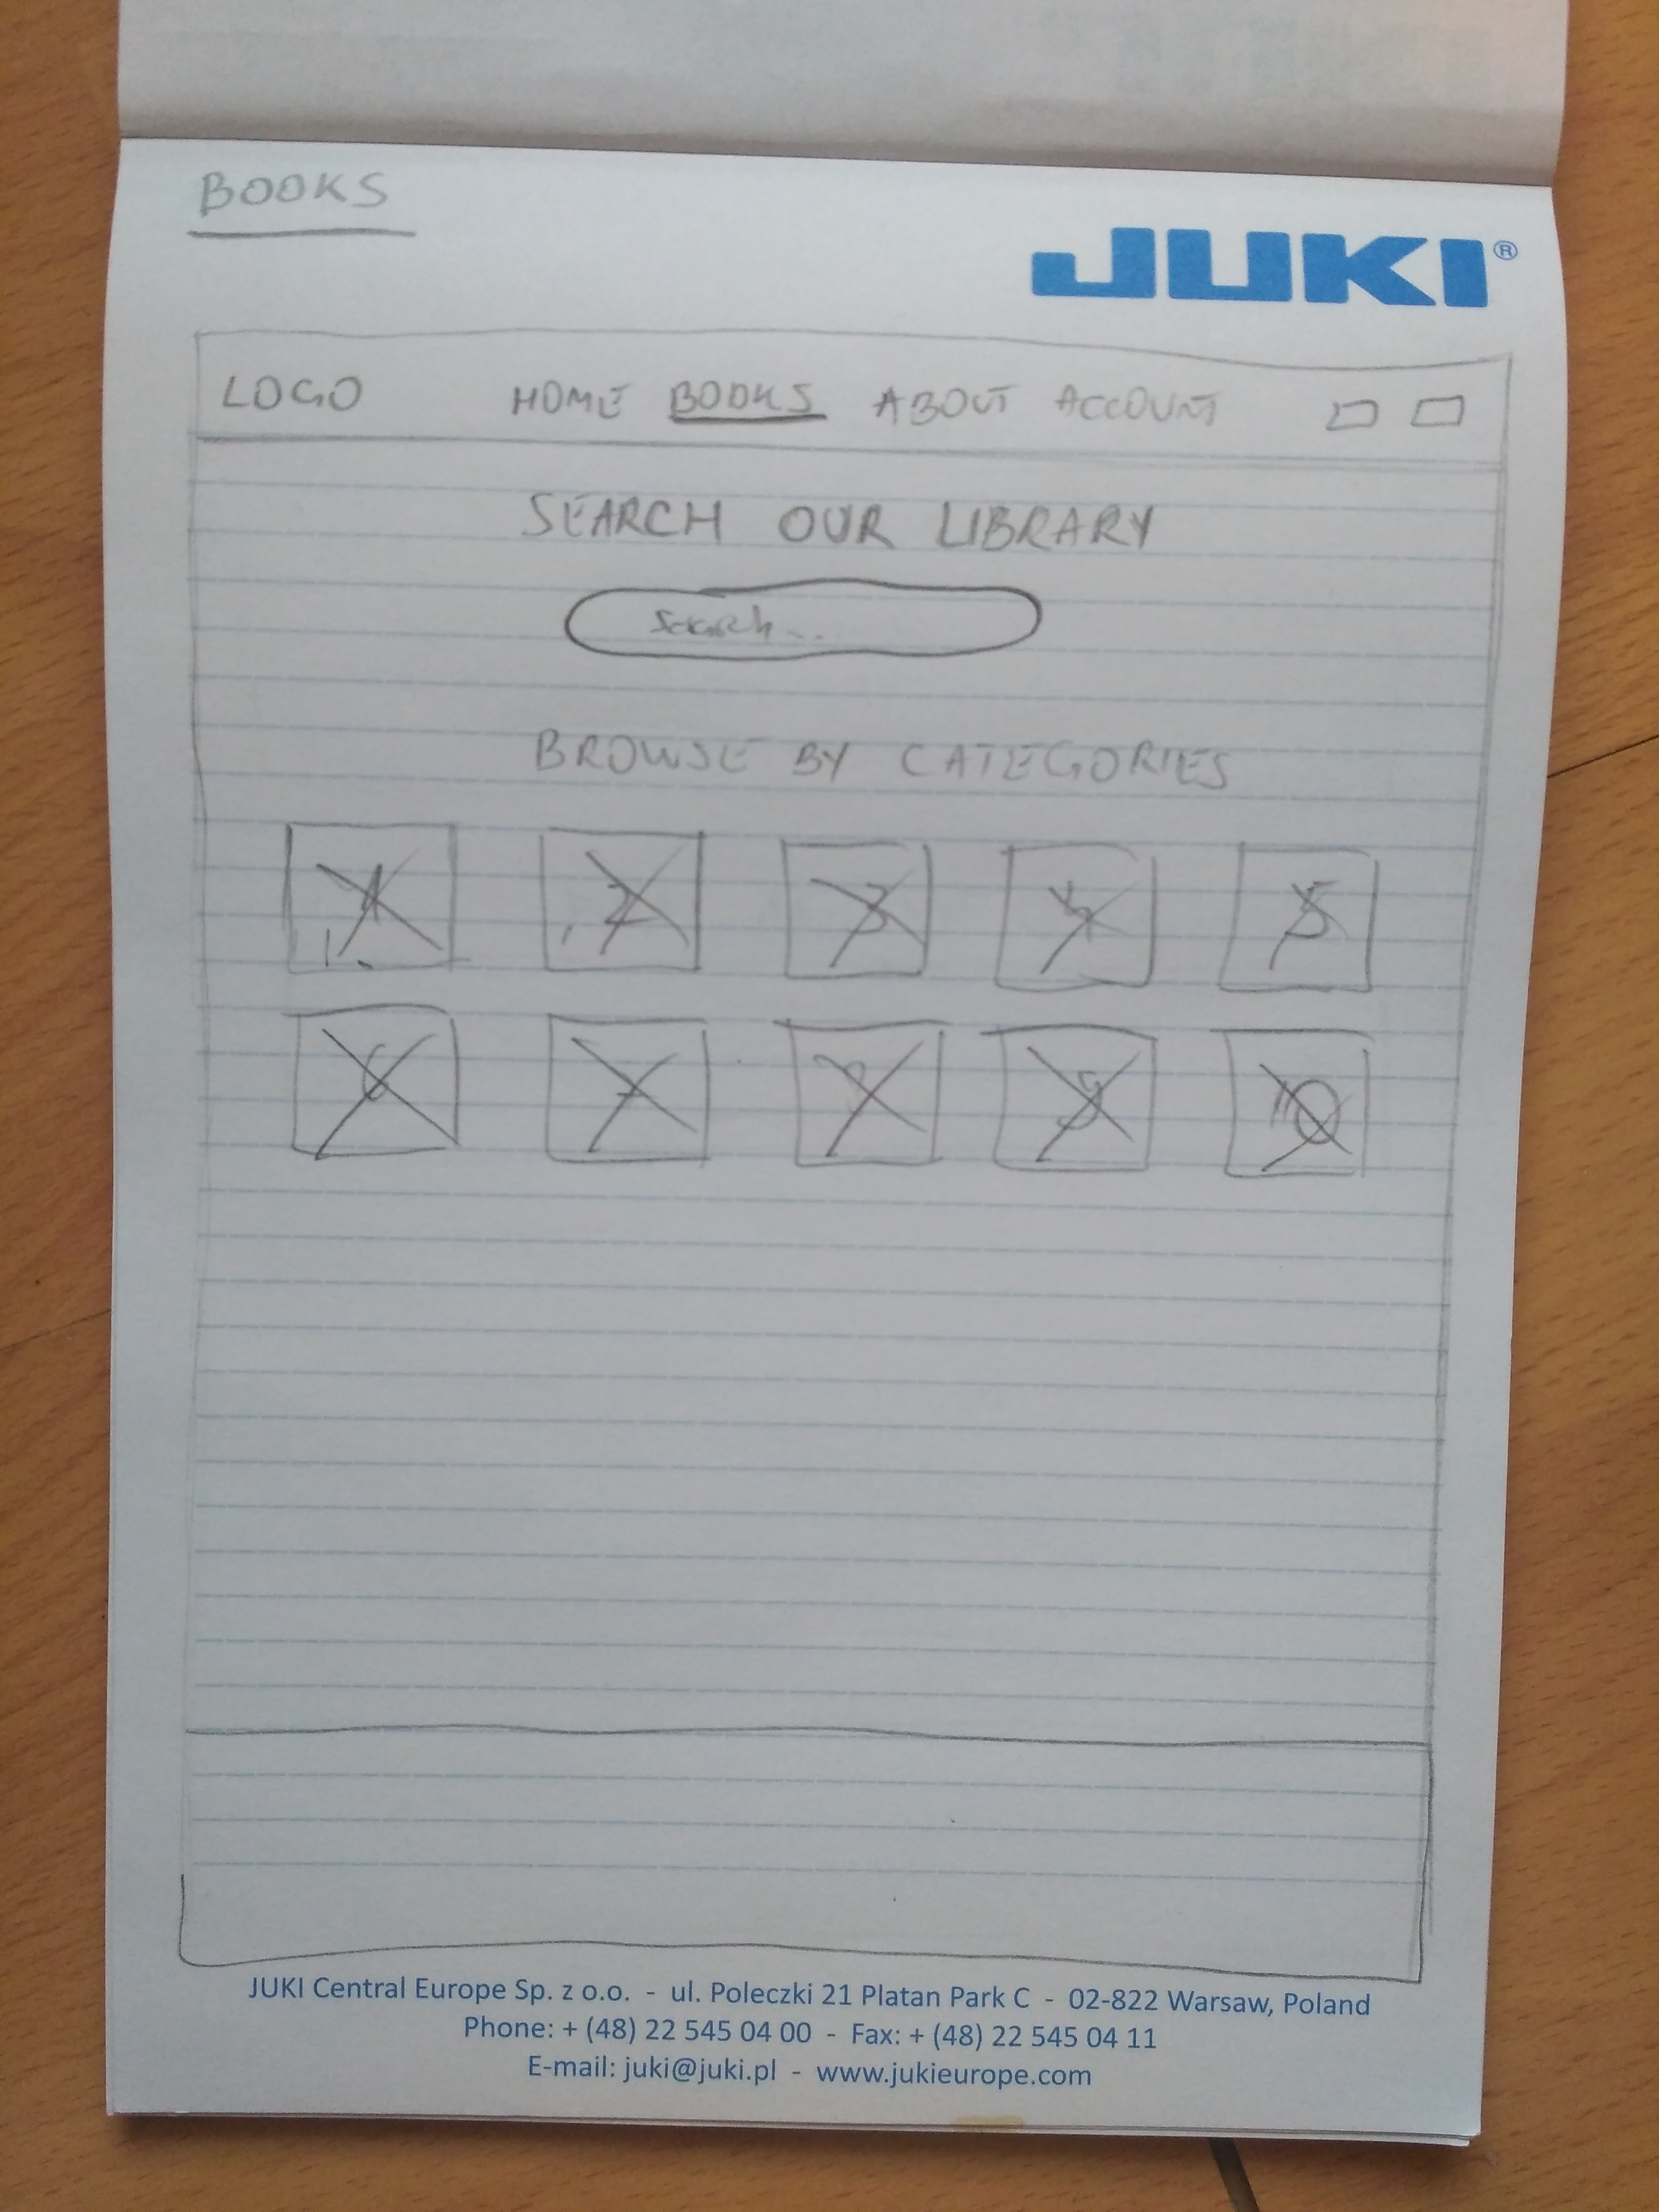 BOOKS
JUKI®
LOGO HOME BOOKS ABOUT ACCOUNT
SEARCH OUR LIBRARY
Search...
BROWSE BY CATEGORIES
1 2 3 4 5
6 7 8 9 10
JUKI Central Europe Sp. z o.o. - ul. Poleczki 21 Platan Park C - 02-822 Warsaw, Poland
Phone: + (48) 22 545 04 00 - Fax: + (48) 22 545 04 11
E-mail: juki@juki.pl - www.jukieurope.com